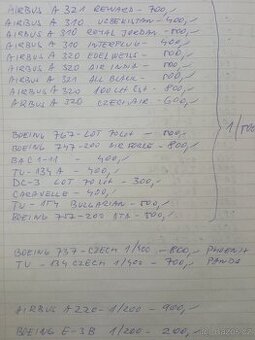 AIRBUS A 321 REWARD - 700,-
AIRBUS A 310 UZBEKISTAN - 400,-
AIRBUS A 310 ROYAL JORDAN - 500,-
AIRBUS A 310 INTERFLUG - 400,-
AIRBUS A 320 EDELWEIS - 500,-
AIRBUS A 320 AIR INDIA - 500,-
AIRBUS A 321 ALL BLACK - 500,-
AIRBUS A 320 100 LET ČSA - 800,-
AIRBUS A 320 CZECH AIR - 600,-
1/500
BOEING 767 - LOT 70 LAT - 500,-
BOEING 747-200 AIR FORCE - 800,-
BAC 1-11 - 400,-
TU-134 A - 400,-
DC-3 LOT 70 LAT - 300,-
CARAVELLE - 400,-
TU-154 BULGARIAN - 500,-
BOEING 757-200 - 500,-
BOEING 737 - CZECH 1/400 - 800,- PHOENIX
TU-134 CZECH 1/400 - 700,- PANDA
AIRBUS A220 - 1/200 - 900,-
BOEING E-3B 1/200 - 200,-